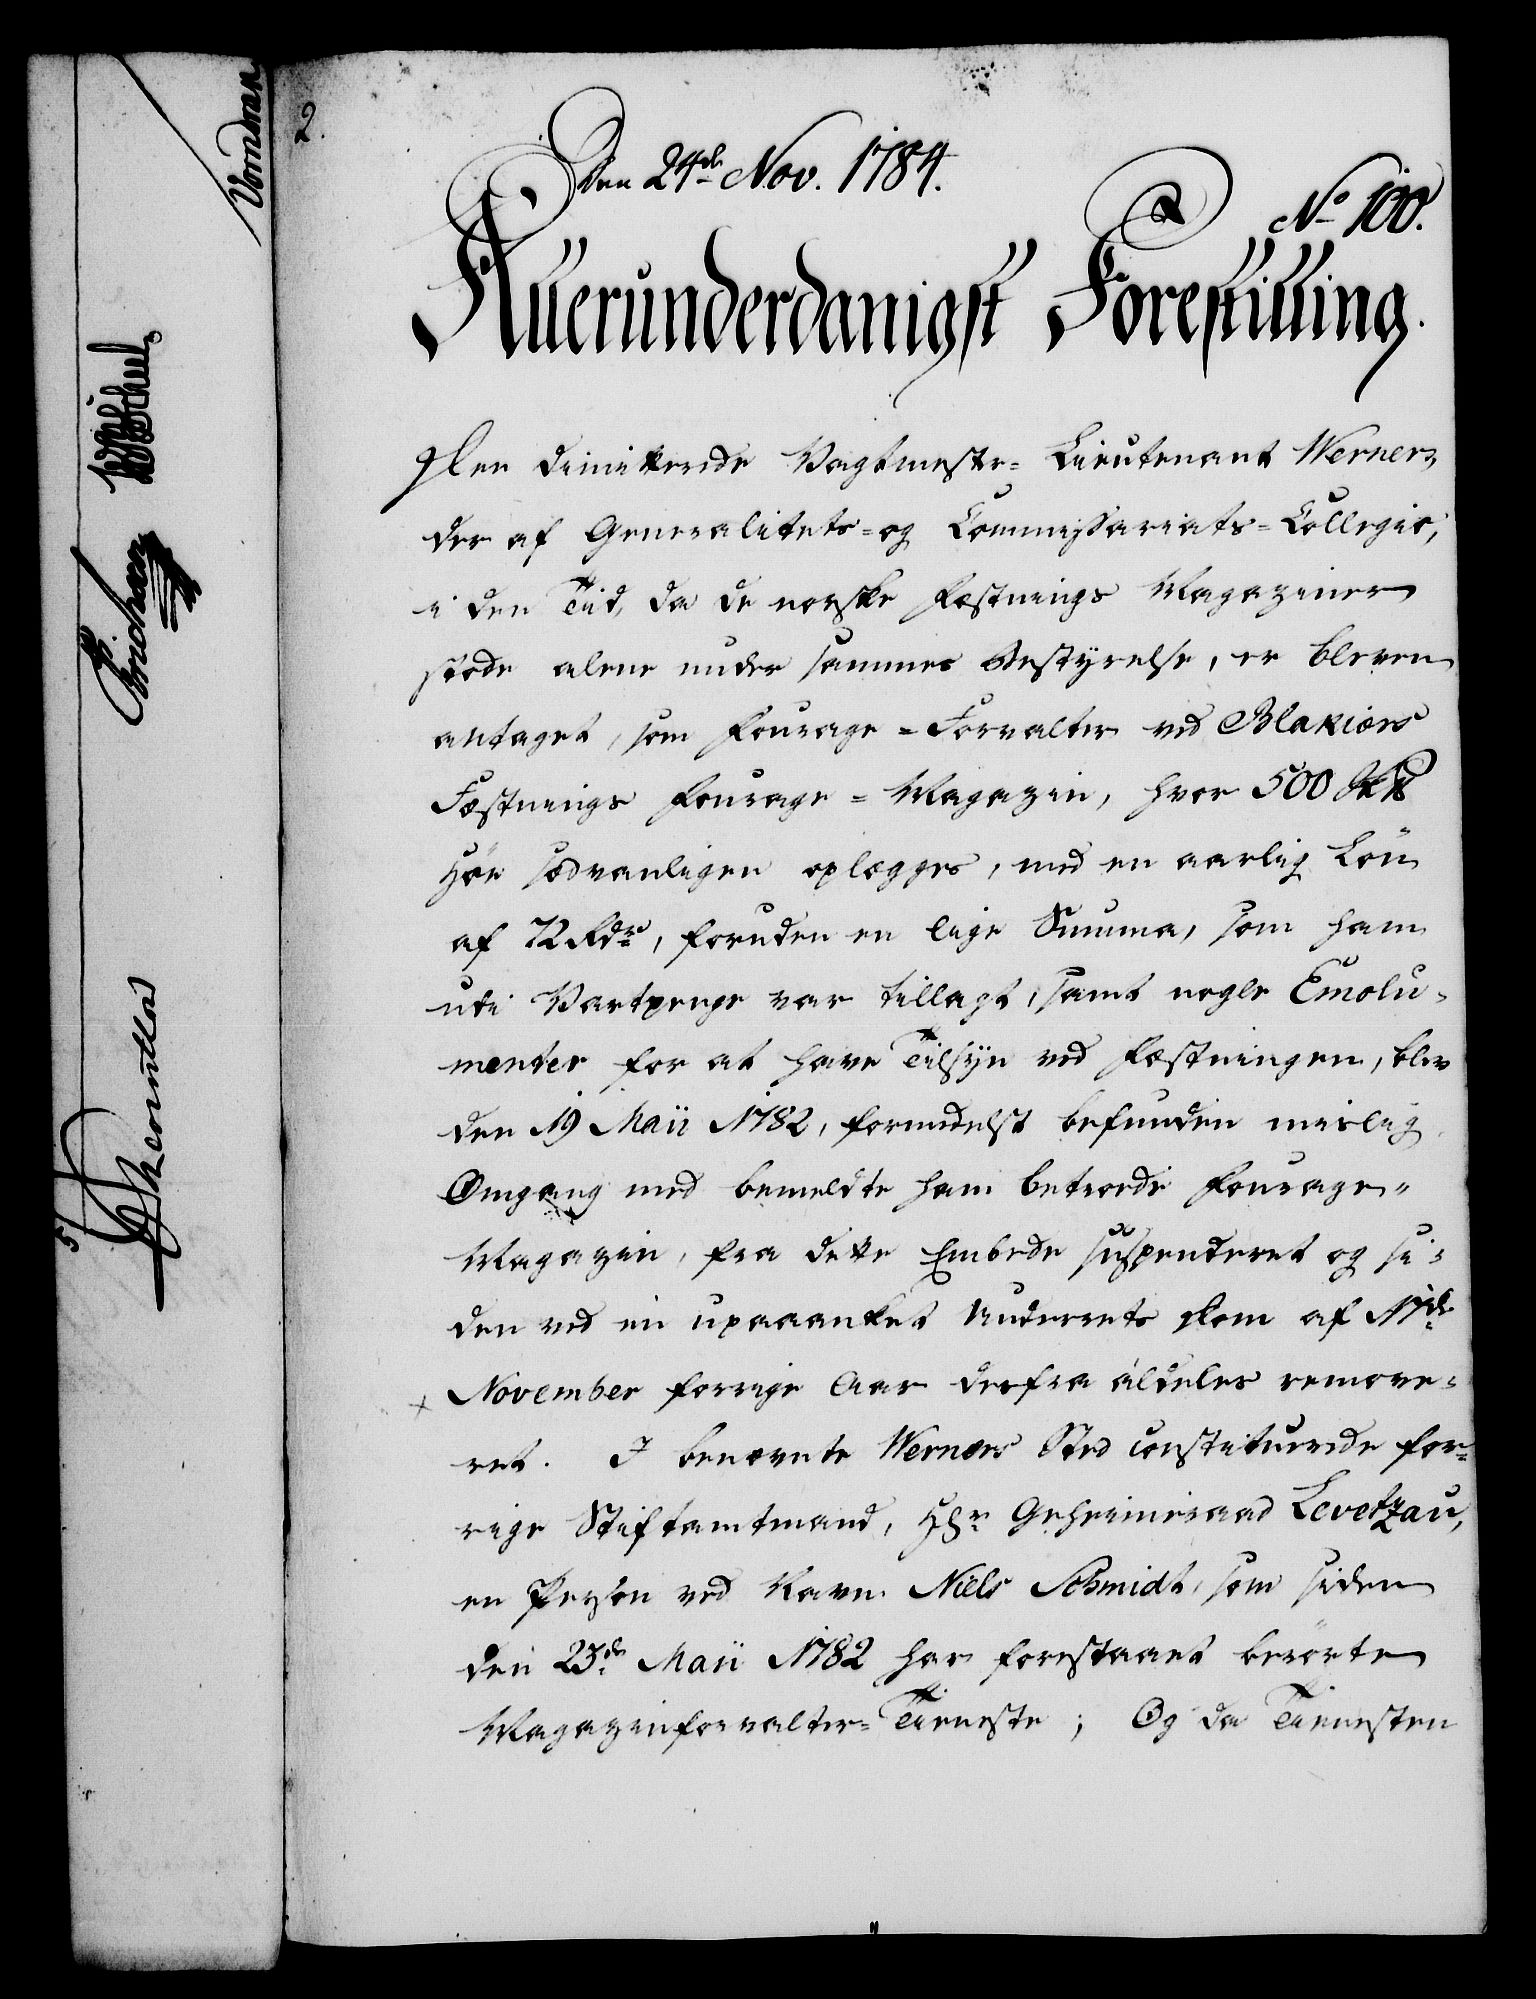 2.
Den 24de Nov. 1784.
No 100.
Allerunderdanigst Forestilling.
Den dimitterede Vagtmester= Lieutenant Werner,
der af Generalitets= og Commissariats= Collegio,
i den Tiid, da de norske Fæstnings Magaziner
stode alene under sammes Bestyrelse, er bleven
antaget, som Fourage= Forvalter ved Blakiers
Fæstnings Fourage= Magazin, hvor 500
Höe sædvanligen oplægges, med en aarlig Lön
af 72 Rdr, foruden en lige Summa, som ham
udi Vartpenge var tillagt, samt nogle Emolu=
menter for at have Tilsyn ved Fæstningen, blev
den 19 Maii 1782, formedelst befunden mislig
Omgang med bemeldte ham betroede Fourage=
Magazin, fra dette Embede suspenderet og si=
den ved en upaaanket Underrets Dom af 17de
November forrige Aar derfra aldeles remove=
ret. I benævnte Werners Sted constituerede for=
rige Stiftamtmand, Hr Geheimeraad Levetzau,
en Person ved Navn Niels Schmidt, som siden
den 23de Maii 1782 har forestaaet berörte
Magazinforvalter= Tieneste; Og da Tienesten